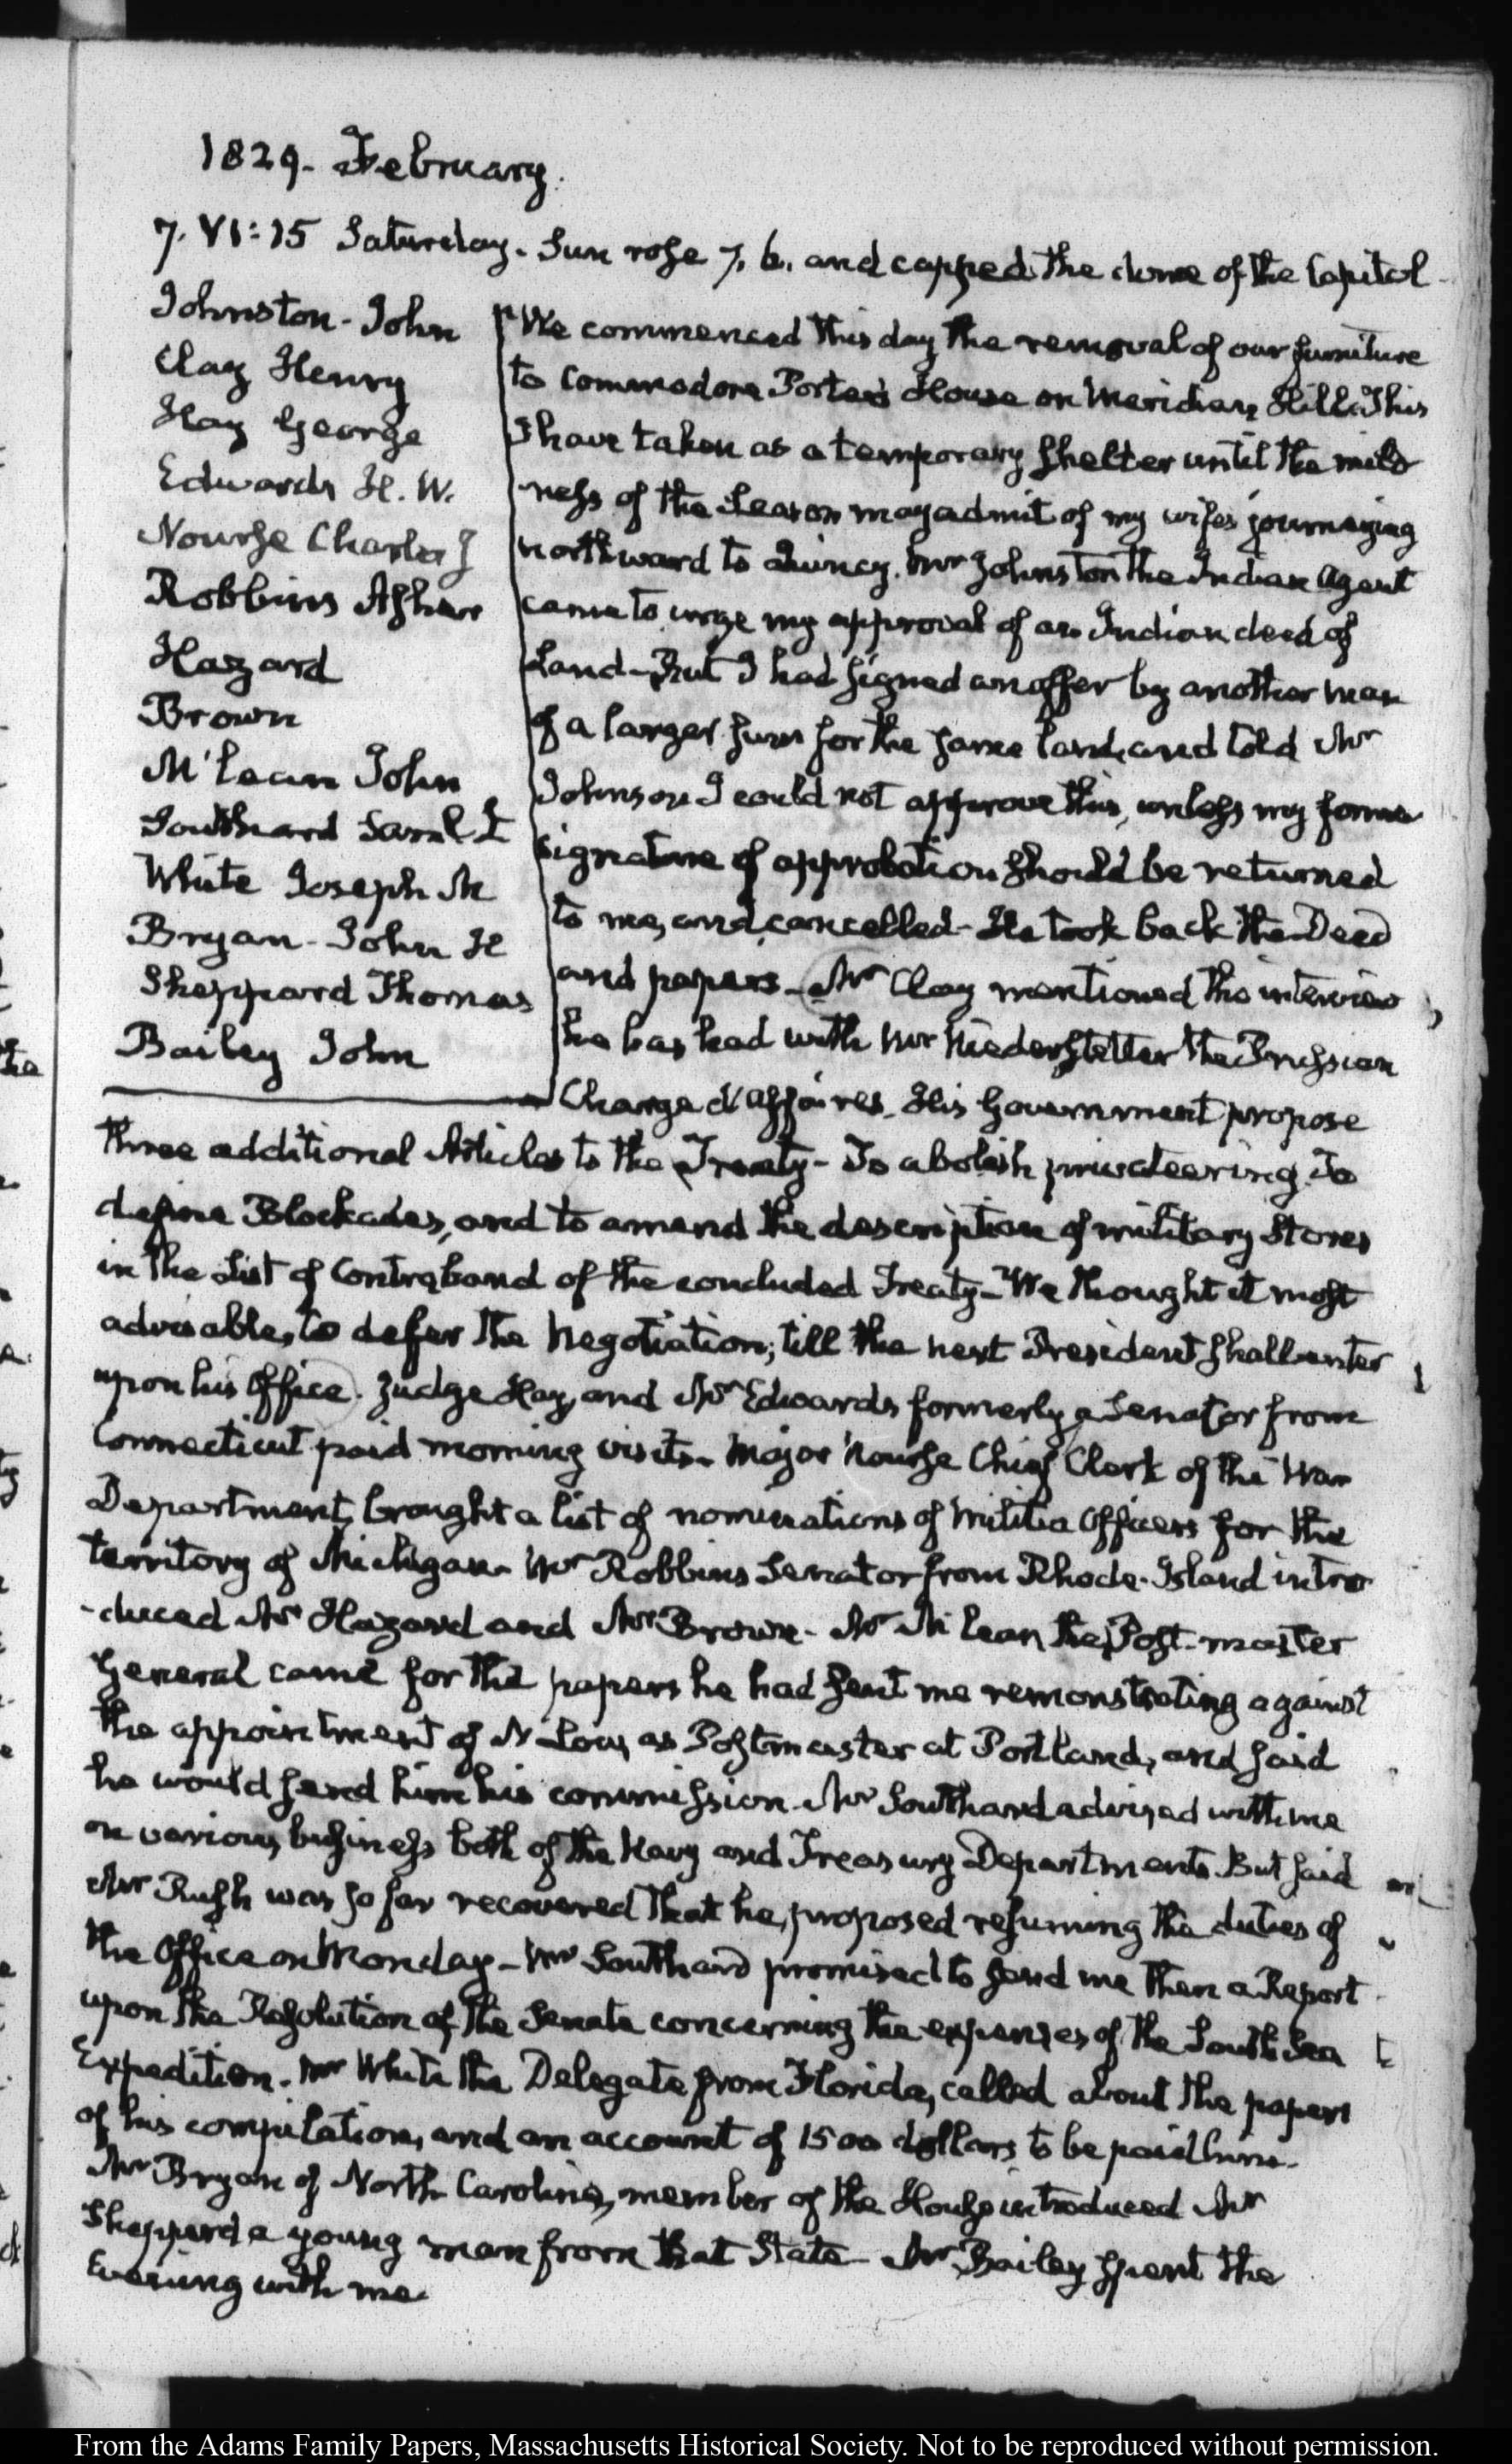 1829. February.
7. VI:15 Saturday. Sun rose 7. 6. and capped the dome of the Capitol
Johnston - John
Clay Henry
Hay George
Edwards H. W.
Nourse Charles J
Robbins Asher
Hazard
Brown
M'Lean John
Southard Saml L
White Joseph M
Bryan - John H
Sheppard Thomas
Bailey John
We commenced this day the removal of our furniture
to Commodore Porter's House on Meridian Hill. This
I have taken as a temporary shelter until the mild
ness of the Season may admit of my wife's journeying
northward to Quincy. Mr Johnston the Indian Agent
came to urge my approval of an Indian deed of
Land - But I had signed an offer by another man
of a larger sum for the same land, and told Mr
Johnson I could not approve this, unless my former
signature of approbation should be returned
to me, and cancelled - He took back the Deed
and papers - Mr Clay mentioned the interview
he has had with Mr Niederstetter the Prussian
Chargé d'Affaires. His Government propose
three additional Articles to the Treaty - To abolish privateering. To
define Blockades, and to amend the description of military Stores
in the List of Contraband of the concluded Treaty - We thought it most
advisable, to defer the Negotiation; till the next President shall enter
upon his Office. Judge Hay, and Mr Edwards formerly a Senator from
Connecticut paid morning visits. Major Nourse Chief Clerk of the War
Department, brought a list of nominations of Militia Officers for the
territory of Michigan. Mr Robbins Senator from Rhode-Island intro
-duced Mr Hazard and Mr Brown - Mr M'Lean the Post-master
General came for the papers he had sent me remonstrating against
the appointment of N. Low, as Postmaster at Portland, and said
he would send him his commission. Mr Southard advised with me
on various business both of the Navy and Treasury Departments. But said
Mr Rush was so far recovered that he, proposed resuming the duties of
the Office on Monday - Mr Southard promised to send me then a Report
upon the Resolution of the Senate concerning the expenses of the South Sea
Expedition. Mr White the Delegate from Florida, called about the papers
of his compilation, and an account of 1500 dollars to be paid him.
Mr Bryan of North Carolina, member of the House introduced Mr
Sheppard a young man from that State - Mr Bailey spent the
Evening with me.
From the Adams Family Papers, Massachusetts Historical Society. Not to be reproduced without permission.